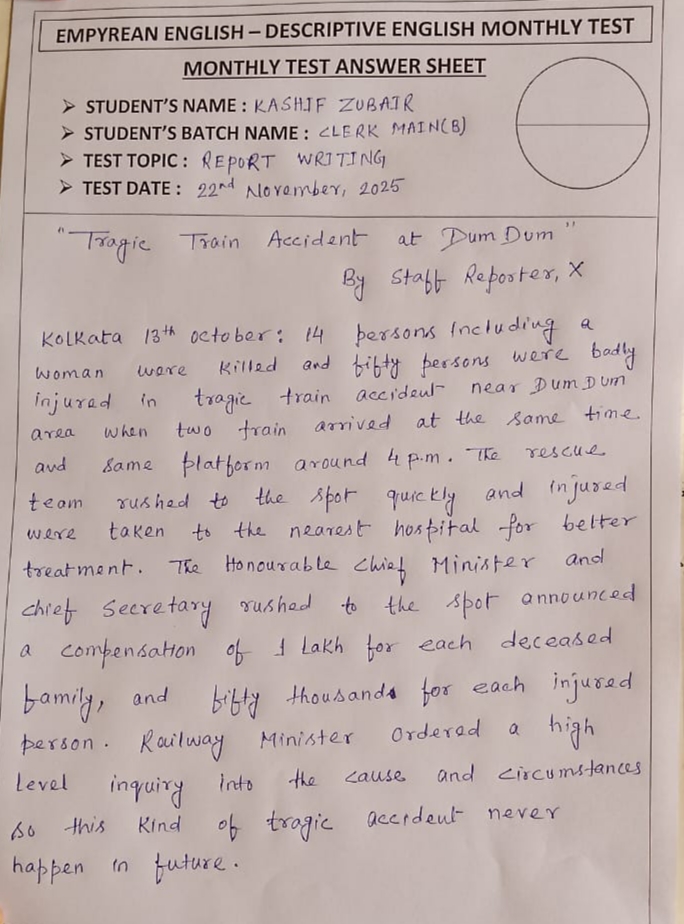 EMPYREAN ENGLISH – DESCRIPTIVE ENGLISH MONTHLY TEST
MONTHLY TEST ANSWER SHEET
➤ STUDENT'S NAME : KASHIF ZUBAIR
➤ STUDENT'S BATCH NAME : CLERK MAIN(B)
➤ TEST TOPIC : REPORT WRITING
➤ TEST DATE : 22nd November, 2025
"Tragic Train Accident at Dum Dum"
By Staff Reporter, X
Kolkata 13th october : 14 persons Including a
woman were killed and fifty persons were badly
injured in tragic train accident near Dum Dum
area when two train arrived at the same time
and same platform around 4 p.m. The rescue
team rushed to the spot quickly and injured
were taken to the nearest hospital for better
treatment. The Honourable Chief Minister and
chief Secretary rushed to the spot announced
a compensation of 1 Lakh for each deceased
family, and fifty thousands for each injured
person. Railway Minister ordered a high
Level inquiry into the cause and circumstances
so this kind of tragic accident never
happen in future.